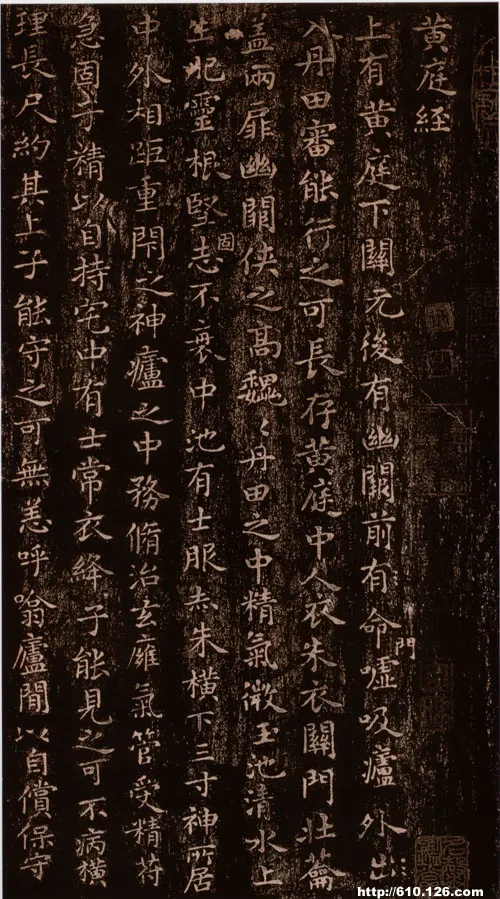 黄庭經
上有黄庭下關元後有幽闕前有命門噓吸廬外出
入丹田審能行之可長存黄庭中人衣朱衣關門壯籥
盖兩扉幽闕俠之高魏〻丹田之中精氣微玉池清水上
生肥靈根堅固志不衰中池有士服赤朱橫下三寸神所居
中外相距重閇之神廬之中務脩治玄癰氣管受精符
急固子精以自持宅中有士常衣絳子能見之可不病橫
理長尺約其上子能守之可無恙呼噏廬間以自償保守
http://610.126.com